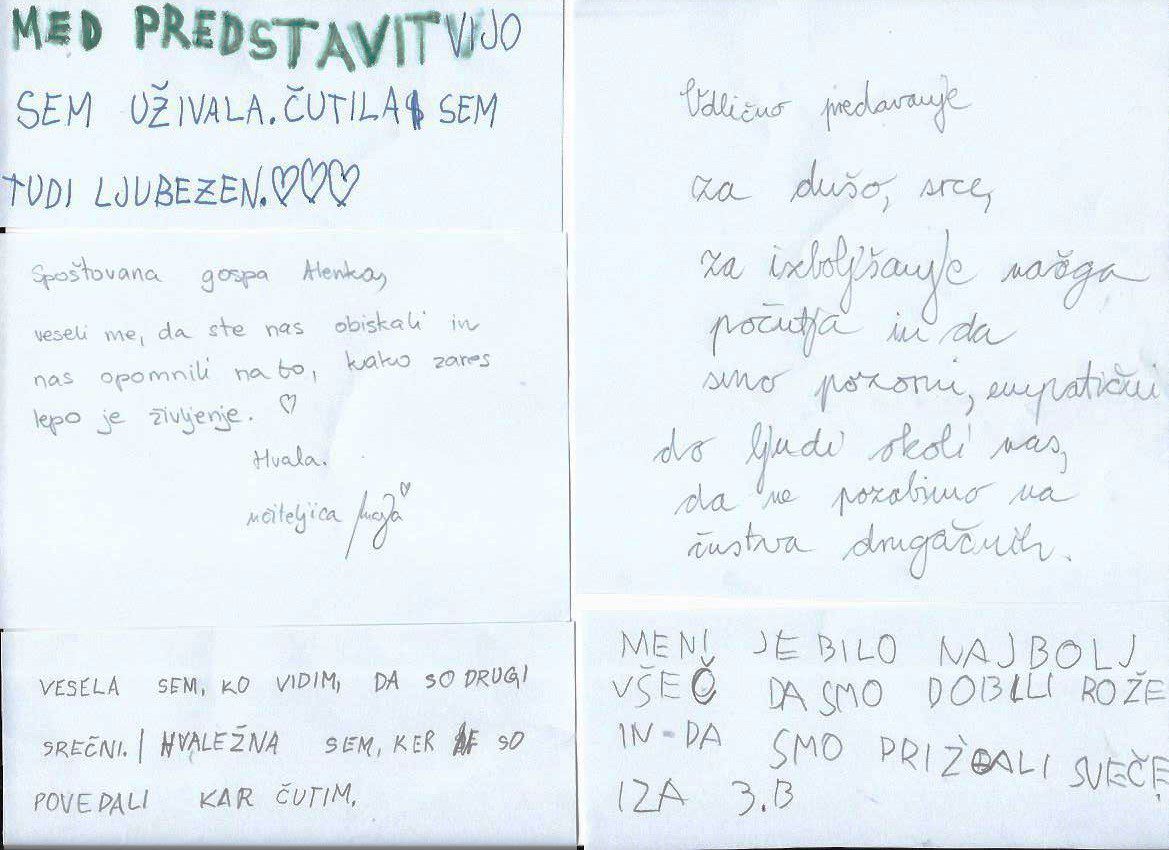 MED PREDSTAVITVIJO
SEM UŽIVALA. ČUTILA SEM
TUDI LJUBEZEN.♡♡♡
Spoštovana gospa Alenka,
veseli me, da ste nas obiskali in
nas opomnili na to, kako zares
lepo je življenje. ♡
Hvala.
učiteljica
VESELA SEM, KO VIDIM, DA SO DRUGI
SREČNI. HVALEŽNA SEM, KER SO
POVEDALI KAR ČUTIM.
Odlično predavanje
za dušo, srce,
za izboljšanje našga
počutja in da
smo pozorni, empatični
do ljudi okoli nas,
da ne pozabimo na
čustva drugačnih.
MENI JE BILO NAJBOLJ
VŠEČ DA SMO DOBILI ROŽE
IN-DA SMO PRIŽGALI SVEČE.
IZA 3.B